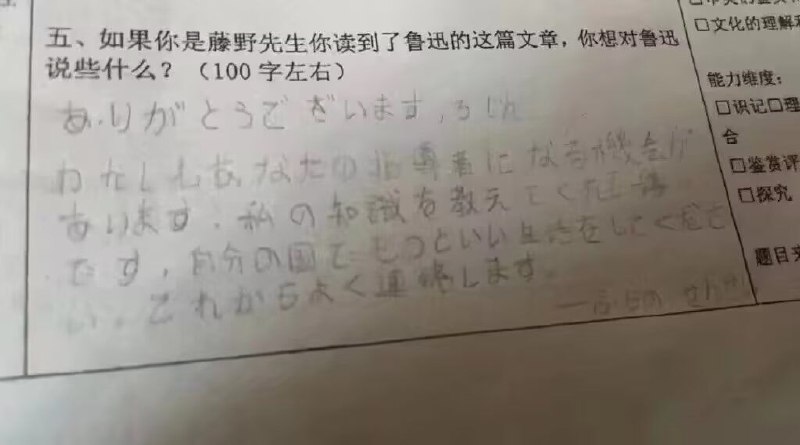 五、如果你是藤野先生你读到了鲁迅的这篇文章，你想对鲁迅
说些什么？（100字左右）
ありがとうございます,ろじん
わたしもあなたの指導者になる機会が
あいます. 私の知識を教えてくだ
です, 自分の国でもっといい生活をしてくださ
い. これからよく連絡します.
□文化的理解
能力维度：
□识记□理
合
□鉴赏评
□探究
题目来